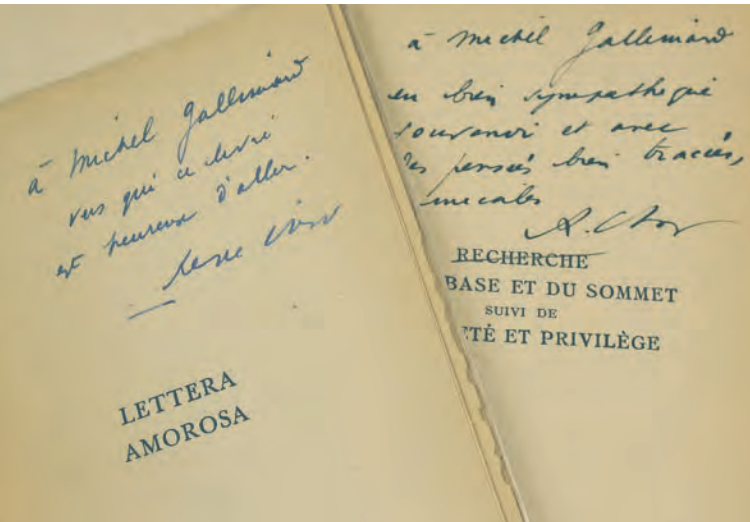 à Michel Gallimard
vers qui ce livre
est heureux d'aller.
René Char
LETTERA
AMOROSA
à Michel Gallimard
en bien sympathique
souvenir et avec
pensées bien
amicales
R. Char
RECHERCHE
BASE ET DU SOMMET
SUIVI DE
TÉ ET PRIVILÈGE